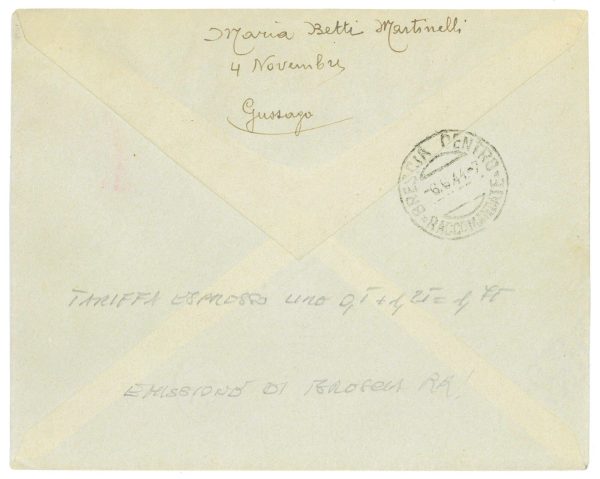 Maria Betti Martinelli
4 Novembre
Gussago
BRESCIA DENTRO
RACCOMANDATE
TARIFFA ESPRESSO
EMISSIONE DI BRESCIA RR!